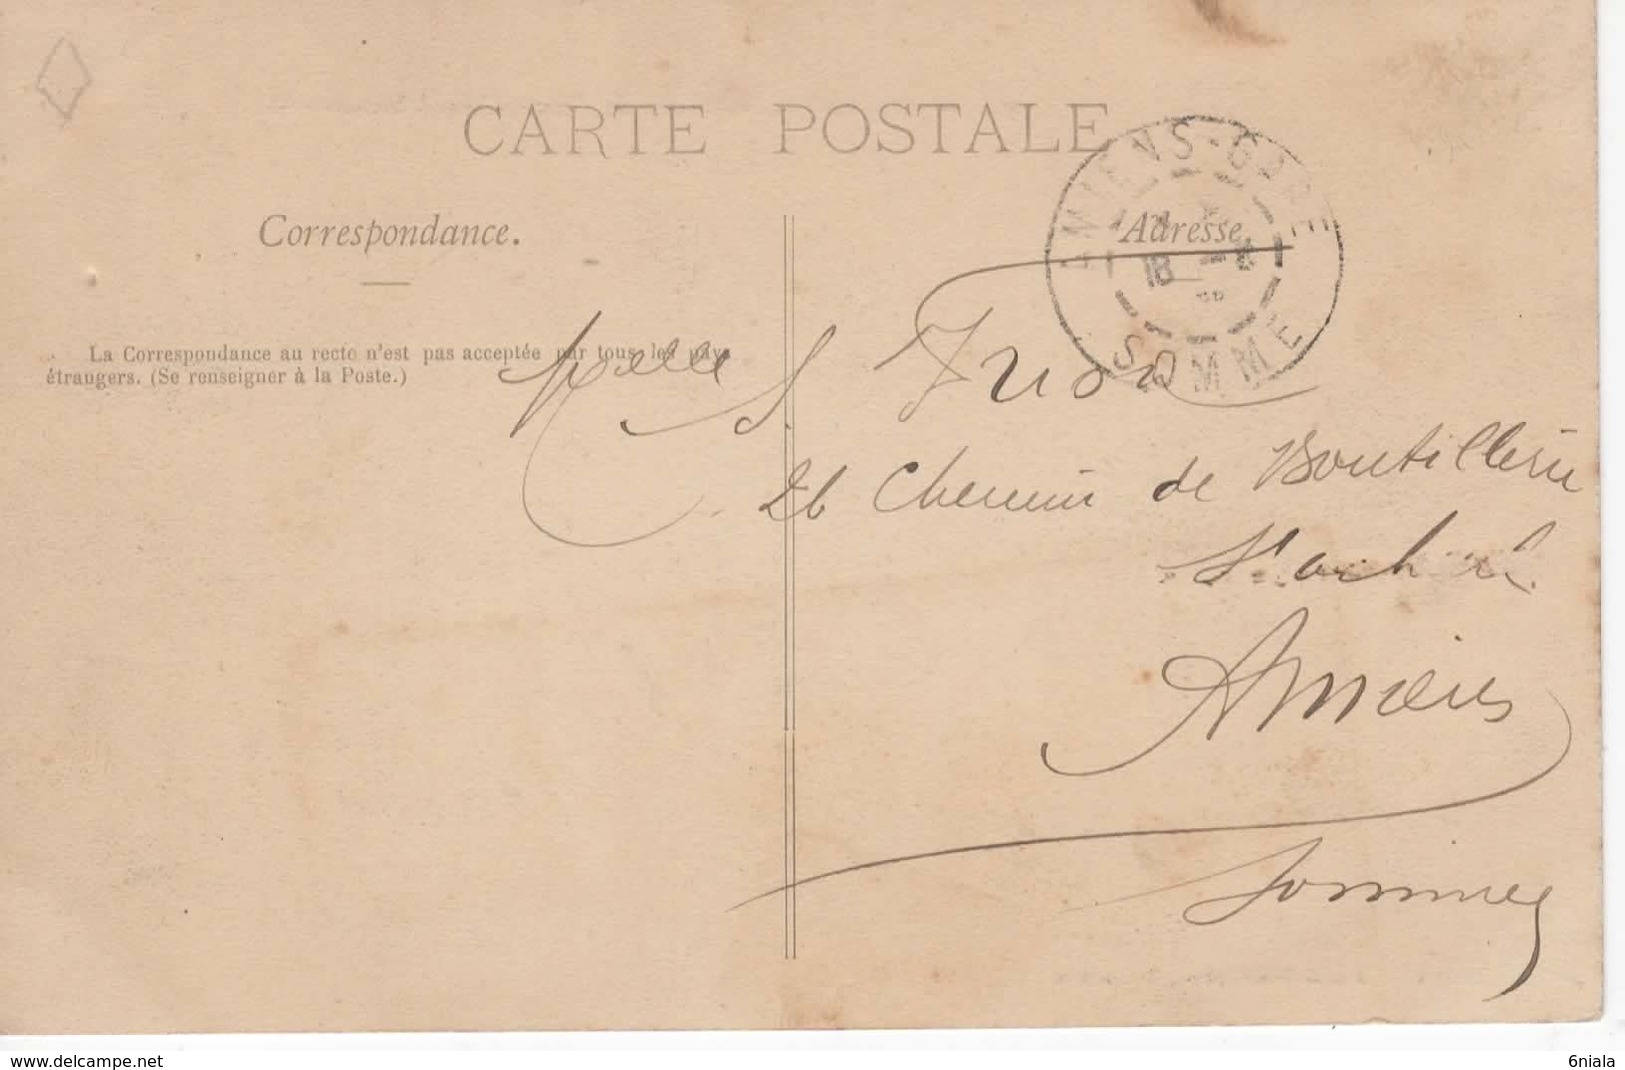 CARTE POSTALE
Correspondance.
La Correspondance au recto n'est pas acceptée par tous les pays
étrangers. (Se renseigner à la Poste.)
AMIENS-GARE
Adresse
18
SOMME
Melle S.
26 Chemin de Boutillerie
St
Amiens
Somme
www.delcampe.net
6niala